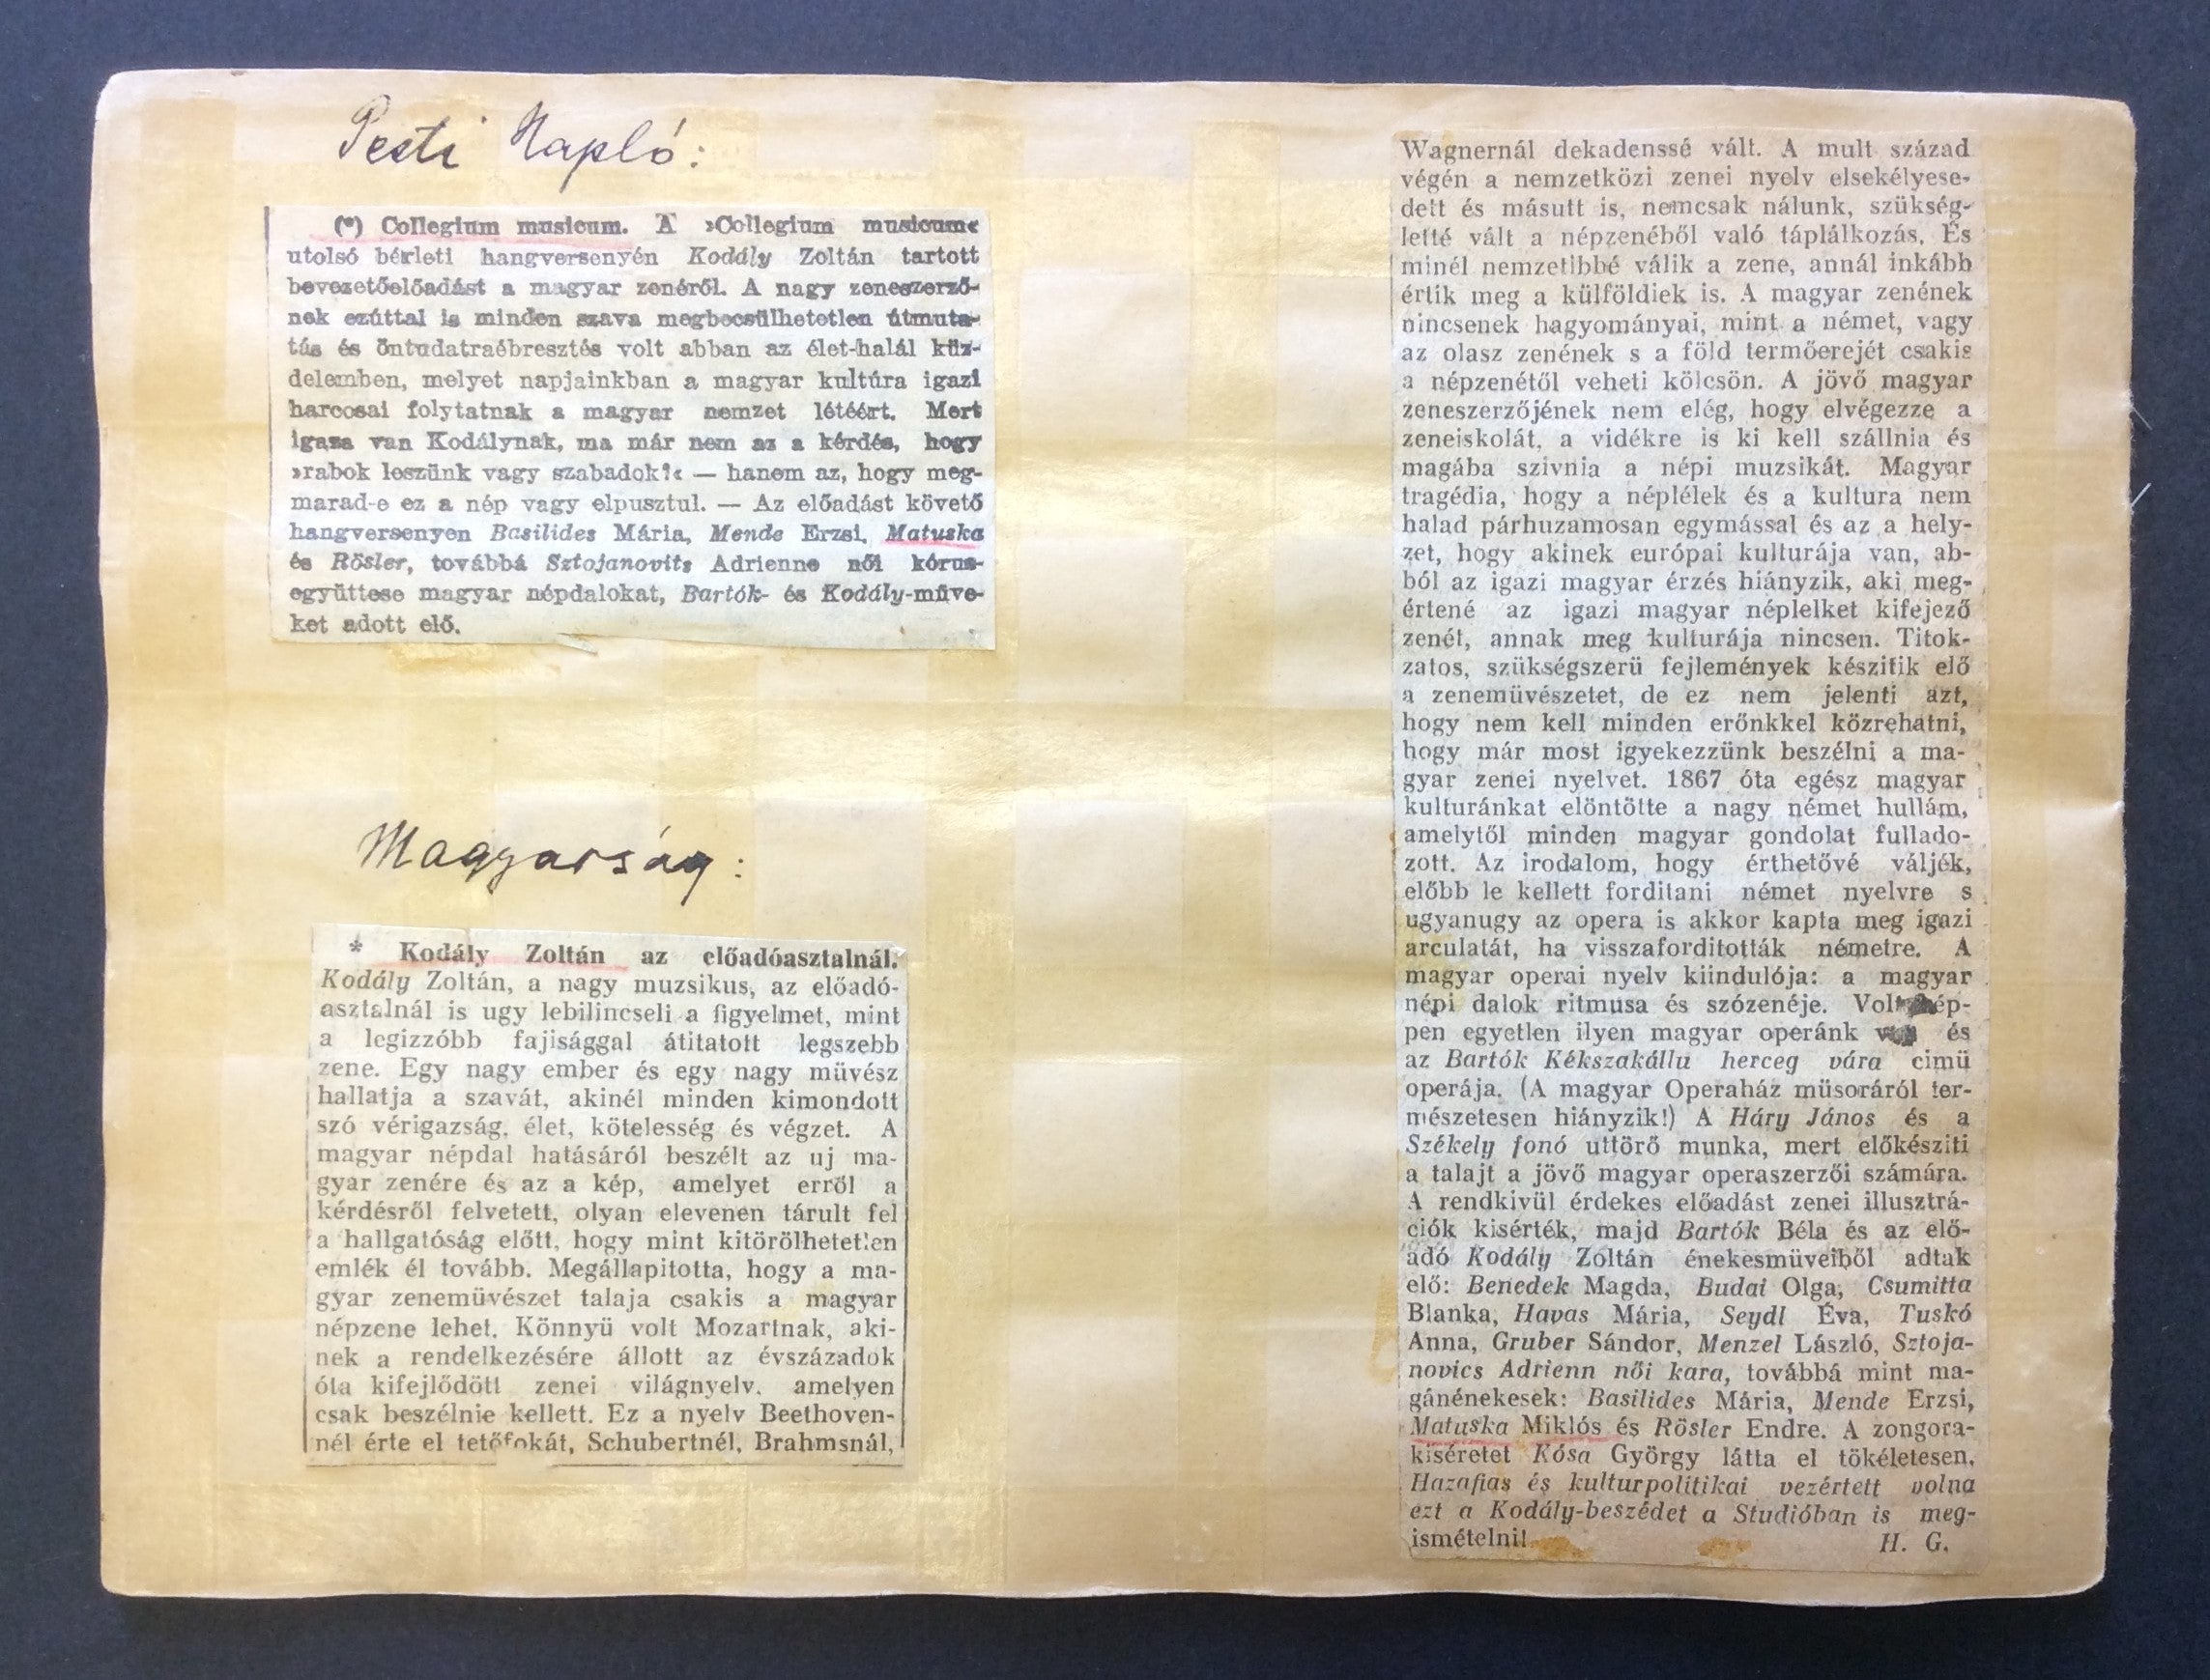 Pesti Napló:
(*) Collegium musicum. A »Collegium musicum«
utolsó bérleti hangversenyén Kodály Zoltán tartott
bevezetőelőadást a magyar zenéről. A nagy zeneszerző-
nek ezúttal is minden szava megbecsülhetetlen útmuta-
tás és öntudatraébresztés volt abban az élet-halál küz-
delemben, melyet napjainkban a magyar kultúra igazi
harcosai folytatnak a magyar nemzet létéért. Mert
igaza van Kodálynak, ma már nem az a kérdés, hogy
»rabok leszünk vagy szabadok?« — hanem az, hogy meg-
marad-e ez a nép vagy elpusztul. — Az előadást követő
hangversenyen Basilides Mária, Mende Erzsi, Matuska
és Rösler, továbbá Sztojanovits Adrienne női kórus-
együttese magyar népdalokat, Bartók- és Kodály-műve-
ket adott elő.
Magyarság:
* Kodály Zoltán az előadóasztalnál.
Kodály Zoltán, a nagy muzsikus, az előadó-
asztalnál is ugy lebilincseli a figyelmet, mint
a legizzóbb fajisággal átitatott legszebb
zene. Egy nagy ember és egy nagy müvész
hallatja a szavát, akinél minden kimondott
szó vérigazság, élet, kötelesség és végzet. A
magyar népdal hatásáról beszélt az uj ma-
gyar zenére és az a kép, amelyet erről a
kérdésről felvetett, olyan elevenen tárult fel
a hallgatóság előtt, hogy mint kitörölhetetlen
emlék él tovább. Megállapitotta, hogy a ma-
gyar zenemüvészet talaja csakis a magyar
népzene lehet. Könnyü volt Mozartnak, aki-
nek a rendelkezésére állott az évszázadok
óta kifejlődött zenei világnyelv, amelyen
csak beszélnie kellett. Ez a nyelv Beethoven-
nél érte el tetőfokát, Schubertnél, Brahmsnál,
Wagnernál dekadenssé vált. A mult század
végén a nemzetközi zenei nyelv elsekélyese-
dett és másutt is, nemcsak nálunk, szükség-
letté vált a népzenéből való táplálkozás. És
minél nemzetibbé válik a zene, annál inkább
értik meg a külföldiek is. A magyar zenének
nincsenek hagyományai, mint a német, vagy
az olasz zenének s a föld termőerejét csakis
a népzenétől veheti kölcsön. A jövő magyar
zeneszerzőjének nem elég, hogy elvégezze a
zeneiskolát, a vidékre is ki kell szállnia és
magába szivnia a népi muzsikát. Magyar
tragédia, hogy a néplélek és a kultura nem
halad párhuzamosan egymással és az a hely-
zet, hogy akinek európai kulturája van, ab-
ból az igazi magyar érzés hiányzik, aki meg-
értené az igazi magyar néplelket kifejező
zenét, annak meg kulturája nincsen. Titok-
zatos, szükségszerü fejlemények készitik elő
a zenemüvészetet, de ez nem jelenti azt,
hogy nem kell minden erőnkkel közrehatni,
hogy már most igyekezzünk beszélni a ma-
gyar zenei nyelvet. 1867 óta egész magyar
kulturánkat elöntötte a nagy német hullám,
amelytől minden magyar gondolat fullado-
zott. Az irodalom, hogy érthetővé váljék,
előbb le kellett forditani német nyelvre s
ugyanugy az opera is akkor kapta meg igazi
arculatát, ha visszaforditották németre. A
magyar operai nyelv kiindulója: a magyar
népi dalok ritmusa és szózenéje. Voltakép-
pen egyetlen ilyen magyar operánk van és
az Bartók Kékszakállu herceg vára cimü
operája. (A magyar Operaház müsoráról ter-
mészetesen hiányzik!) A Háry János és a
Székely fonó uttörő munka, mert előkésziti
a talajt a jövő magyar operaszerzői számára.
A rendkivül érdekes előadást zenei illusztrá-
ciók kisérték, majd Bartók Béla és az elő-
adó Kodály Zoltán énekesmüveiből adtak
elő: Benedek Magda, Budai Olga, Csumitta
Blanka, Havas Mária, Seydl Éva, Tuskó
Anna, Gruber Sándor, Menzel László, Sztoja-
novics Adrienn női kara, továbbá mint ma-
gánénekesek: Basilides Mária, Mende Erzsi,
Matuska Miklós és Rösler Endre. A zongora-
kiséretet Kósa György látta el tökéletesen.
Hazafias és kulturpolitikai vezértett volna
ezt a Kodály-beszédet a Studióban is meg-
ismételni!
H. G.